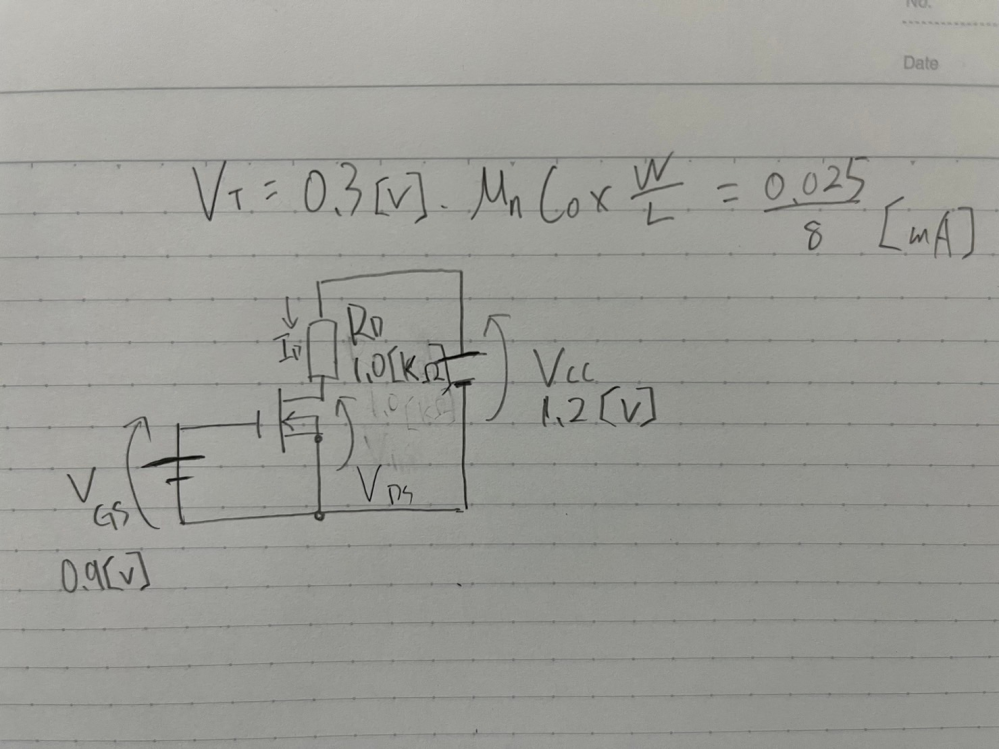 No.
Date
V_T = 0.3 [V]. μn Cox W/L = 0.025/8 [mA]
I_D
R_D
1.0 [kΩ]
1.0 [kΩ]
V_CC
1.2 [V]
V_DS
V_GS
0.9 [V]